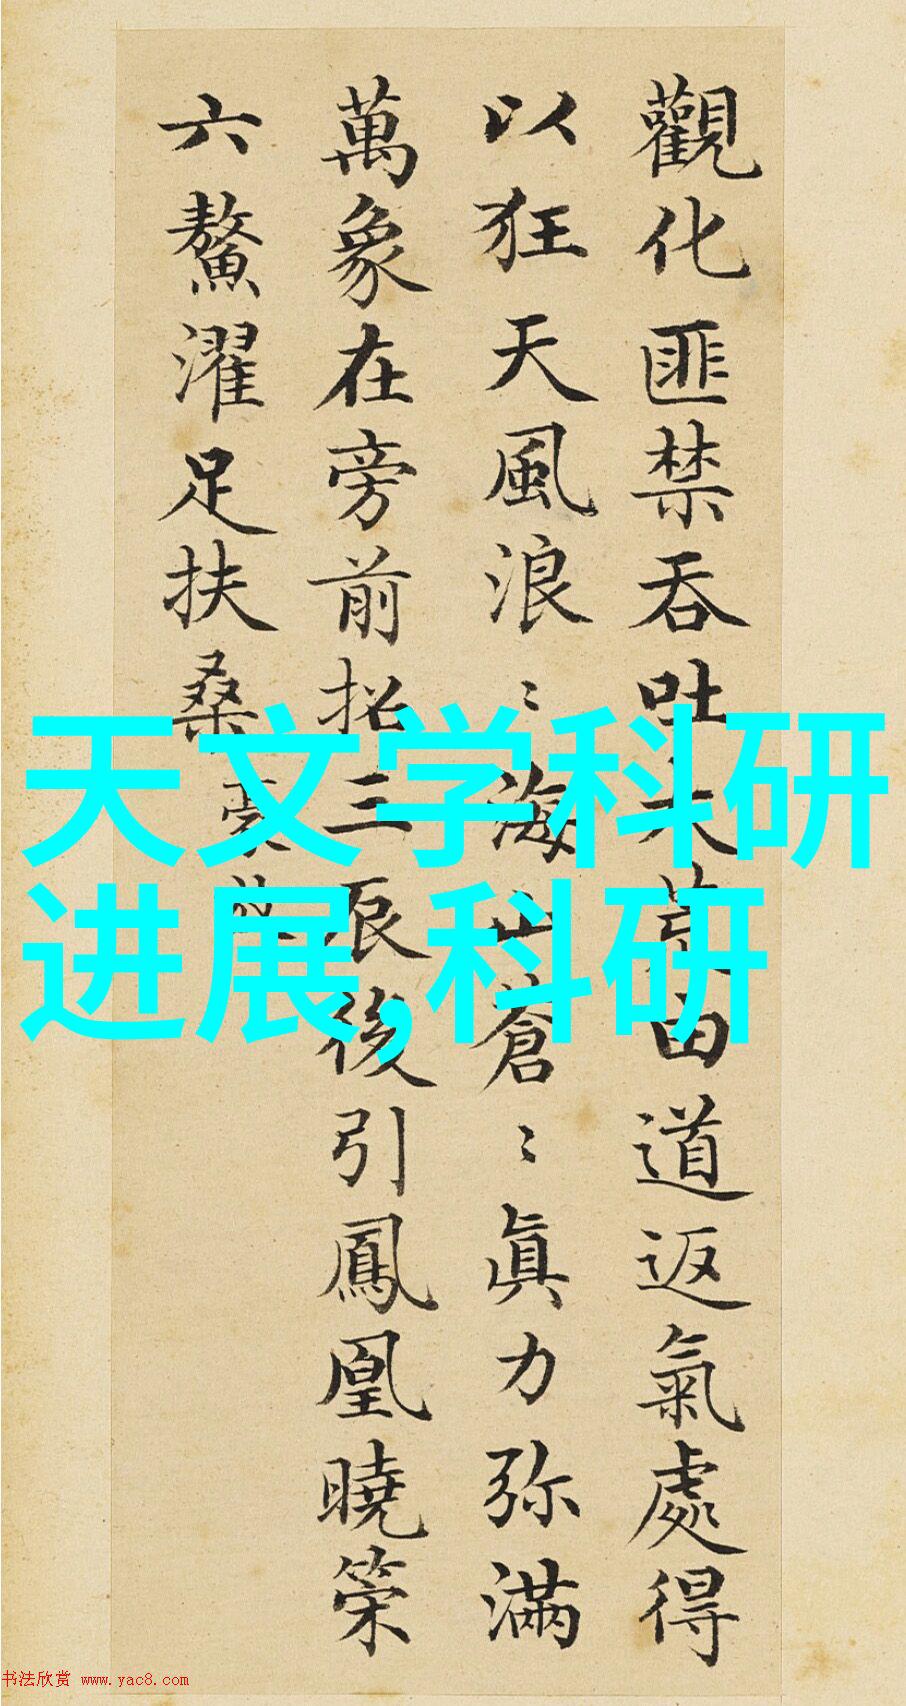 觀化匪禁吞吐大荒由道返氣處得
以狂天風浪〻海山蒼〻真力弥滿
萬象在旁前招三辰後引鳳凰曉策
六鰲濯足扶桑
天文学科研
进展,科研
书法欣赏 www.yac8.com